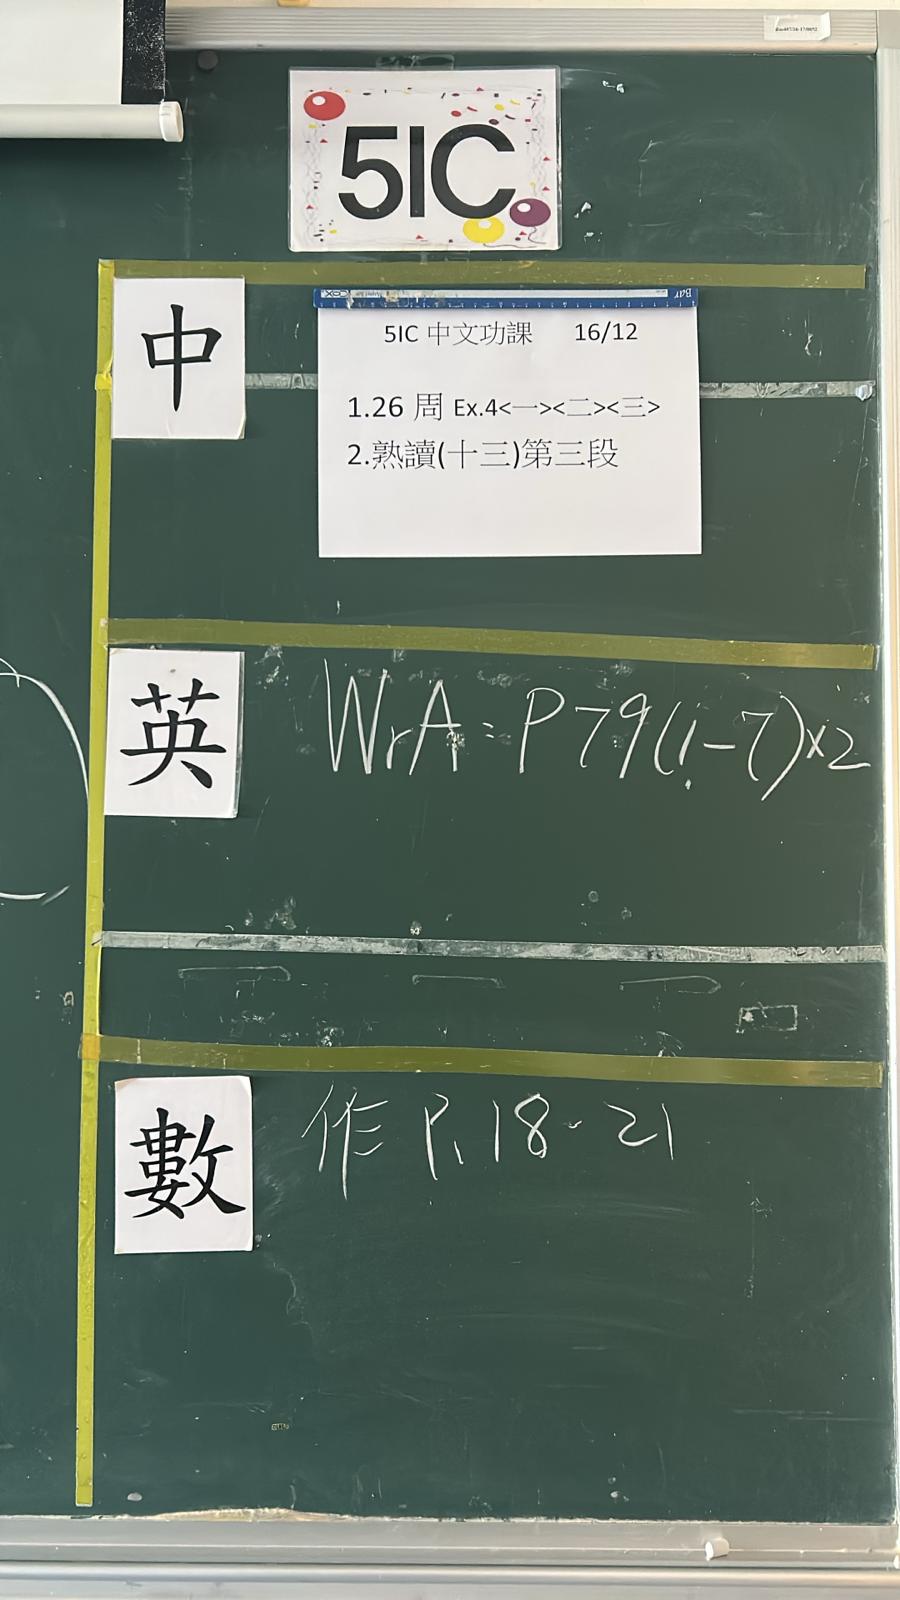 5IC
中
5IC 中文功課 16/12
1.26 周 Ex.4<一><二><三>
2.熟讀(十三)第三段
英
WrA: P79(1-7)x2
數
作 P.18-21